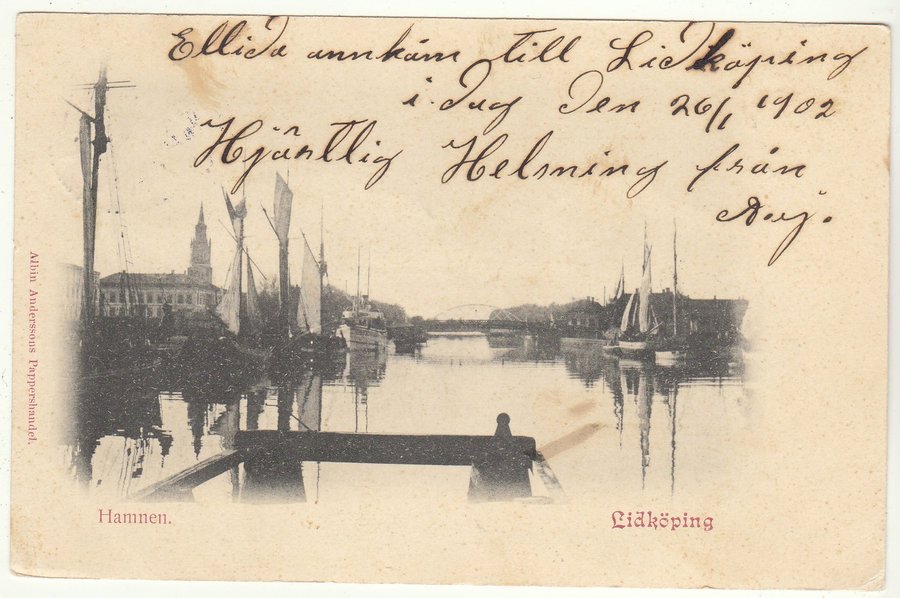 Ellida annkom till Lidköping
i. dag den 26/1 1902
Hjärtlig Helsning från
Albin Anderssons Pappershandel.
Hamnen.
Lidköping